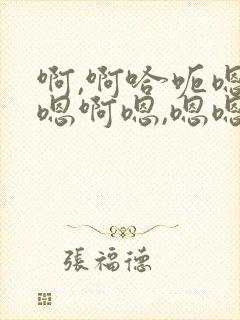 啊,啊哈呃嗯
嗯啊嗯,嗯嗯
張福德